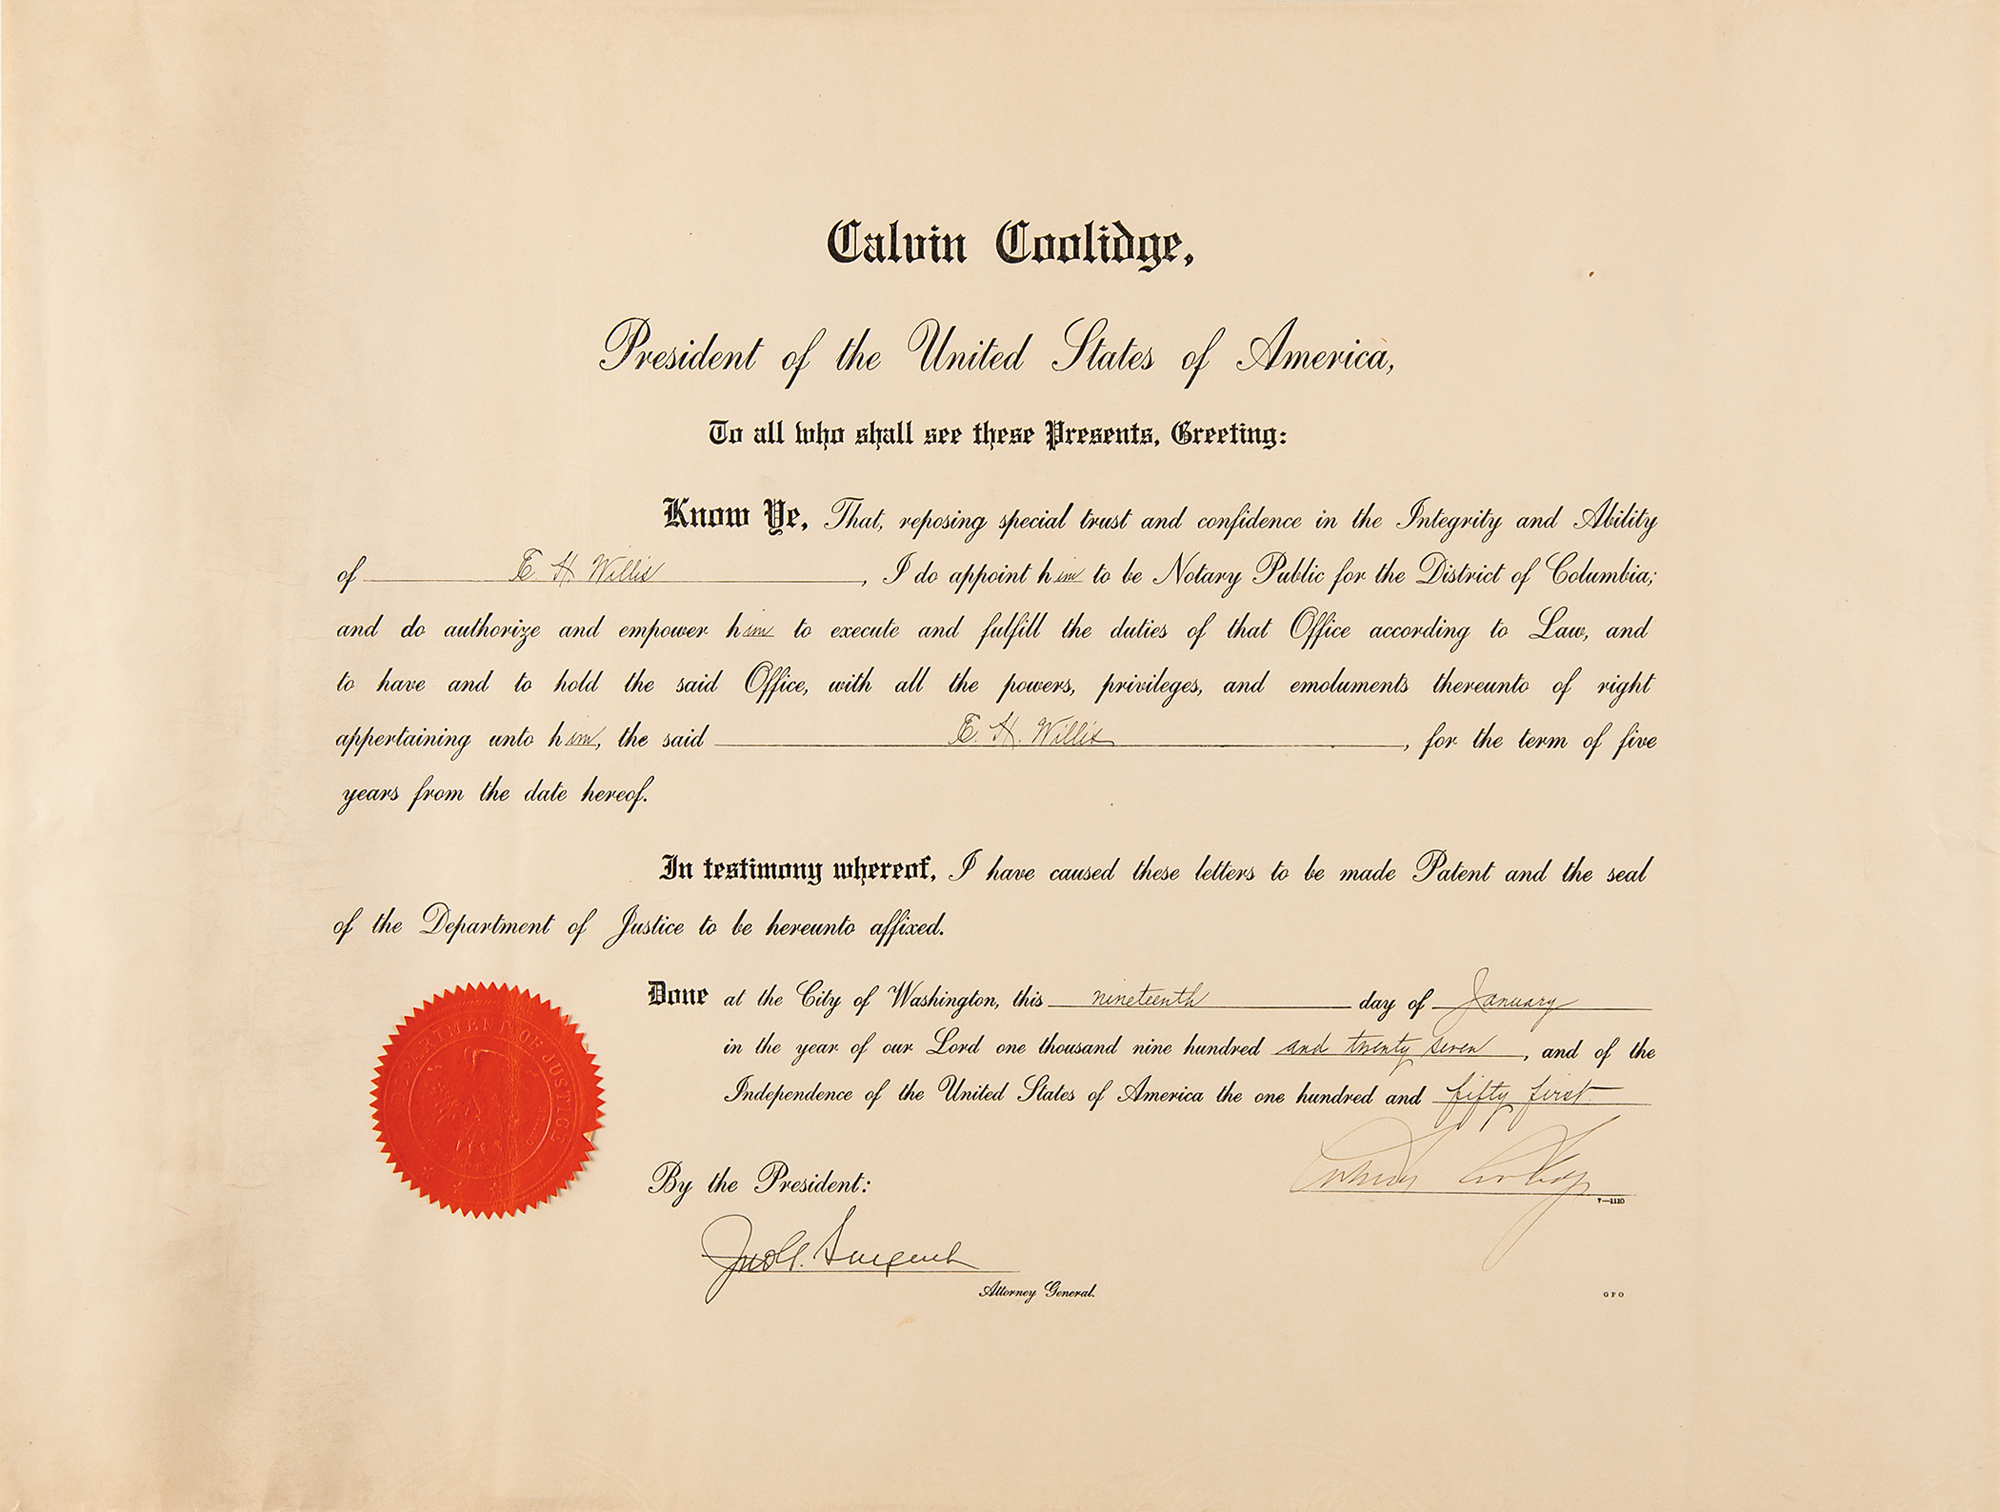 Calvin Coolidge,
President of the United States of America,
To all who shall see these Presents, Greeting:
Know Ye, That, reposing special trust and confidence in the Integrity and Ability
of E. H. Willis, I do appoint him to be Notary Public for the District of Columbia;
and do authorize and empower him to execute and fulfill the duties of that Office according to Law, and
to have and to hold the said Office, with all the powers, privileges, and emoluments thereunto of right
appertaining unto him, the said E. H. Willis, for the term of five
years from the date hereof.
In testimony whereof, I have caused these letters to be made Patent and the seal
of the Department of Justice to be hereunto affixed.
Done at the City of Washington, this nineteenth day of January
in the year of our Lord one thousand nine hundred and twenty seven, and of the
Independence of the United States of America the one hundred and fifty first
DEPARTMENT OF JUSTICE
Calvin Coolidge
By the President:
7—1110
Jno G. Sargent
Attorney General.
GPO